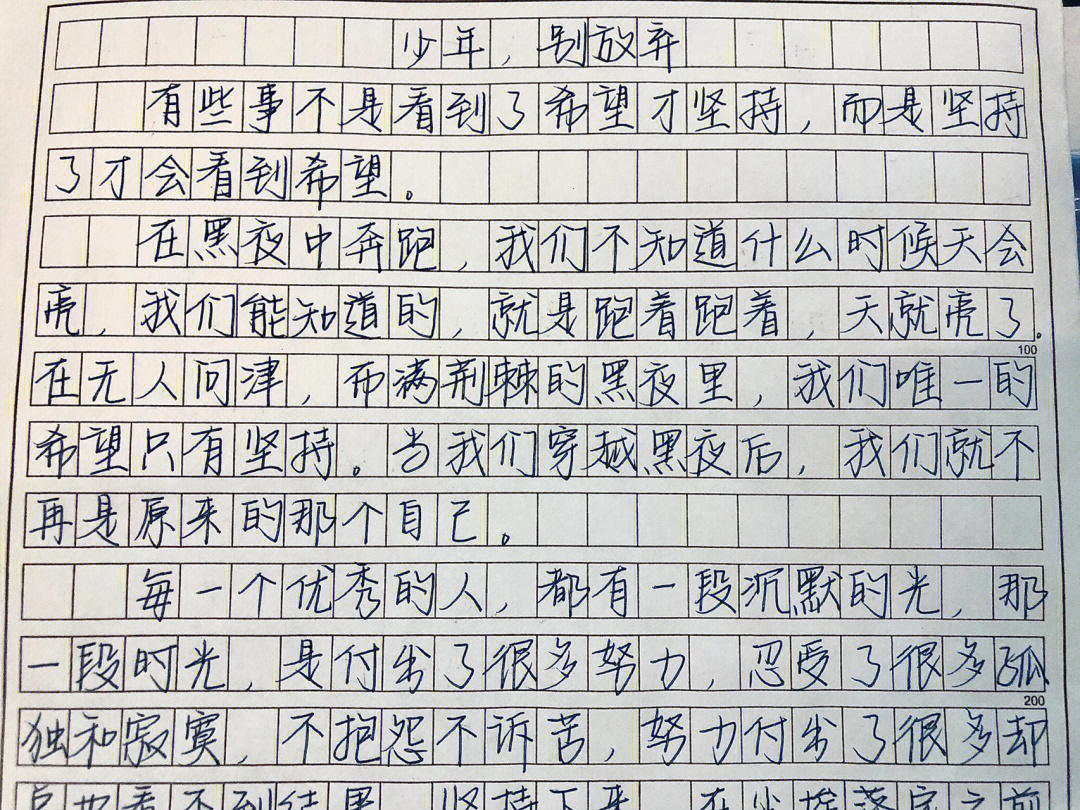 少年,别放弃
有些事不是看到了希望才坚持,而是坚持
了才会看到希望。
在黑夜中奔跑,我们不知道什么时候天会
亮,我们能知道的,就是跑着跑着,天就亮了。
100
在无人问津,布满荆棘的黑夜里,我们唯一的
希望只有坚持。当我们穿越黑夜后,我们就不
再是原来的那个自己。
每一个优秀的人,都有一段沉默的光,那
一段时光,是付出了很多努力,忍受了很多孤
200
独和寂寞,不抱怨不诉苦,努力付出了很多却
也看不到结果,坚持下来,在尘埃落定之前